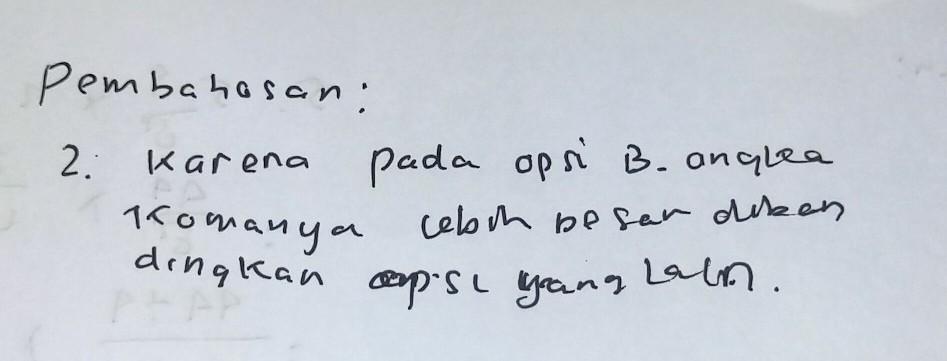 Pembahasan:
2. Karena pada opsi B. angka
Komanya lebih besar
dingkan opsi yang lain.